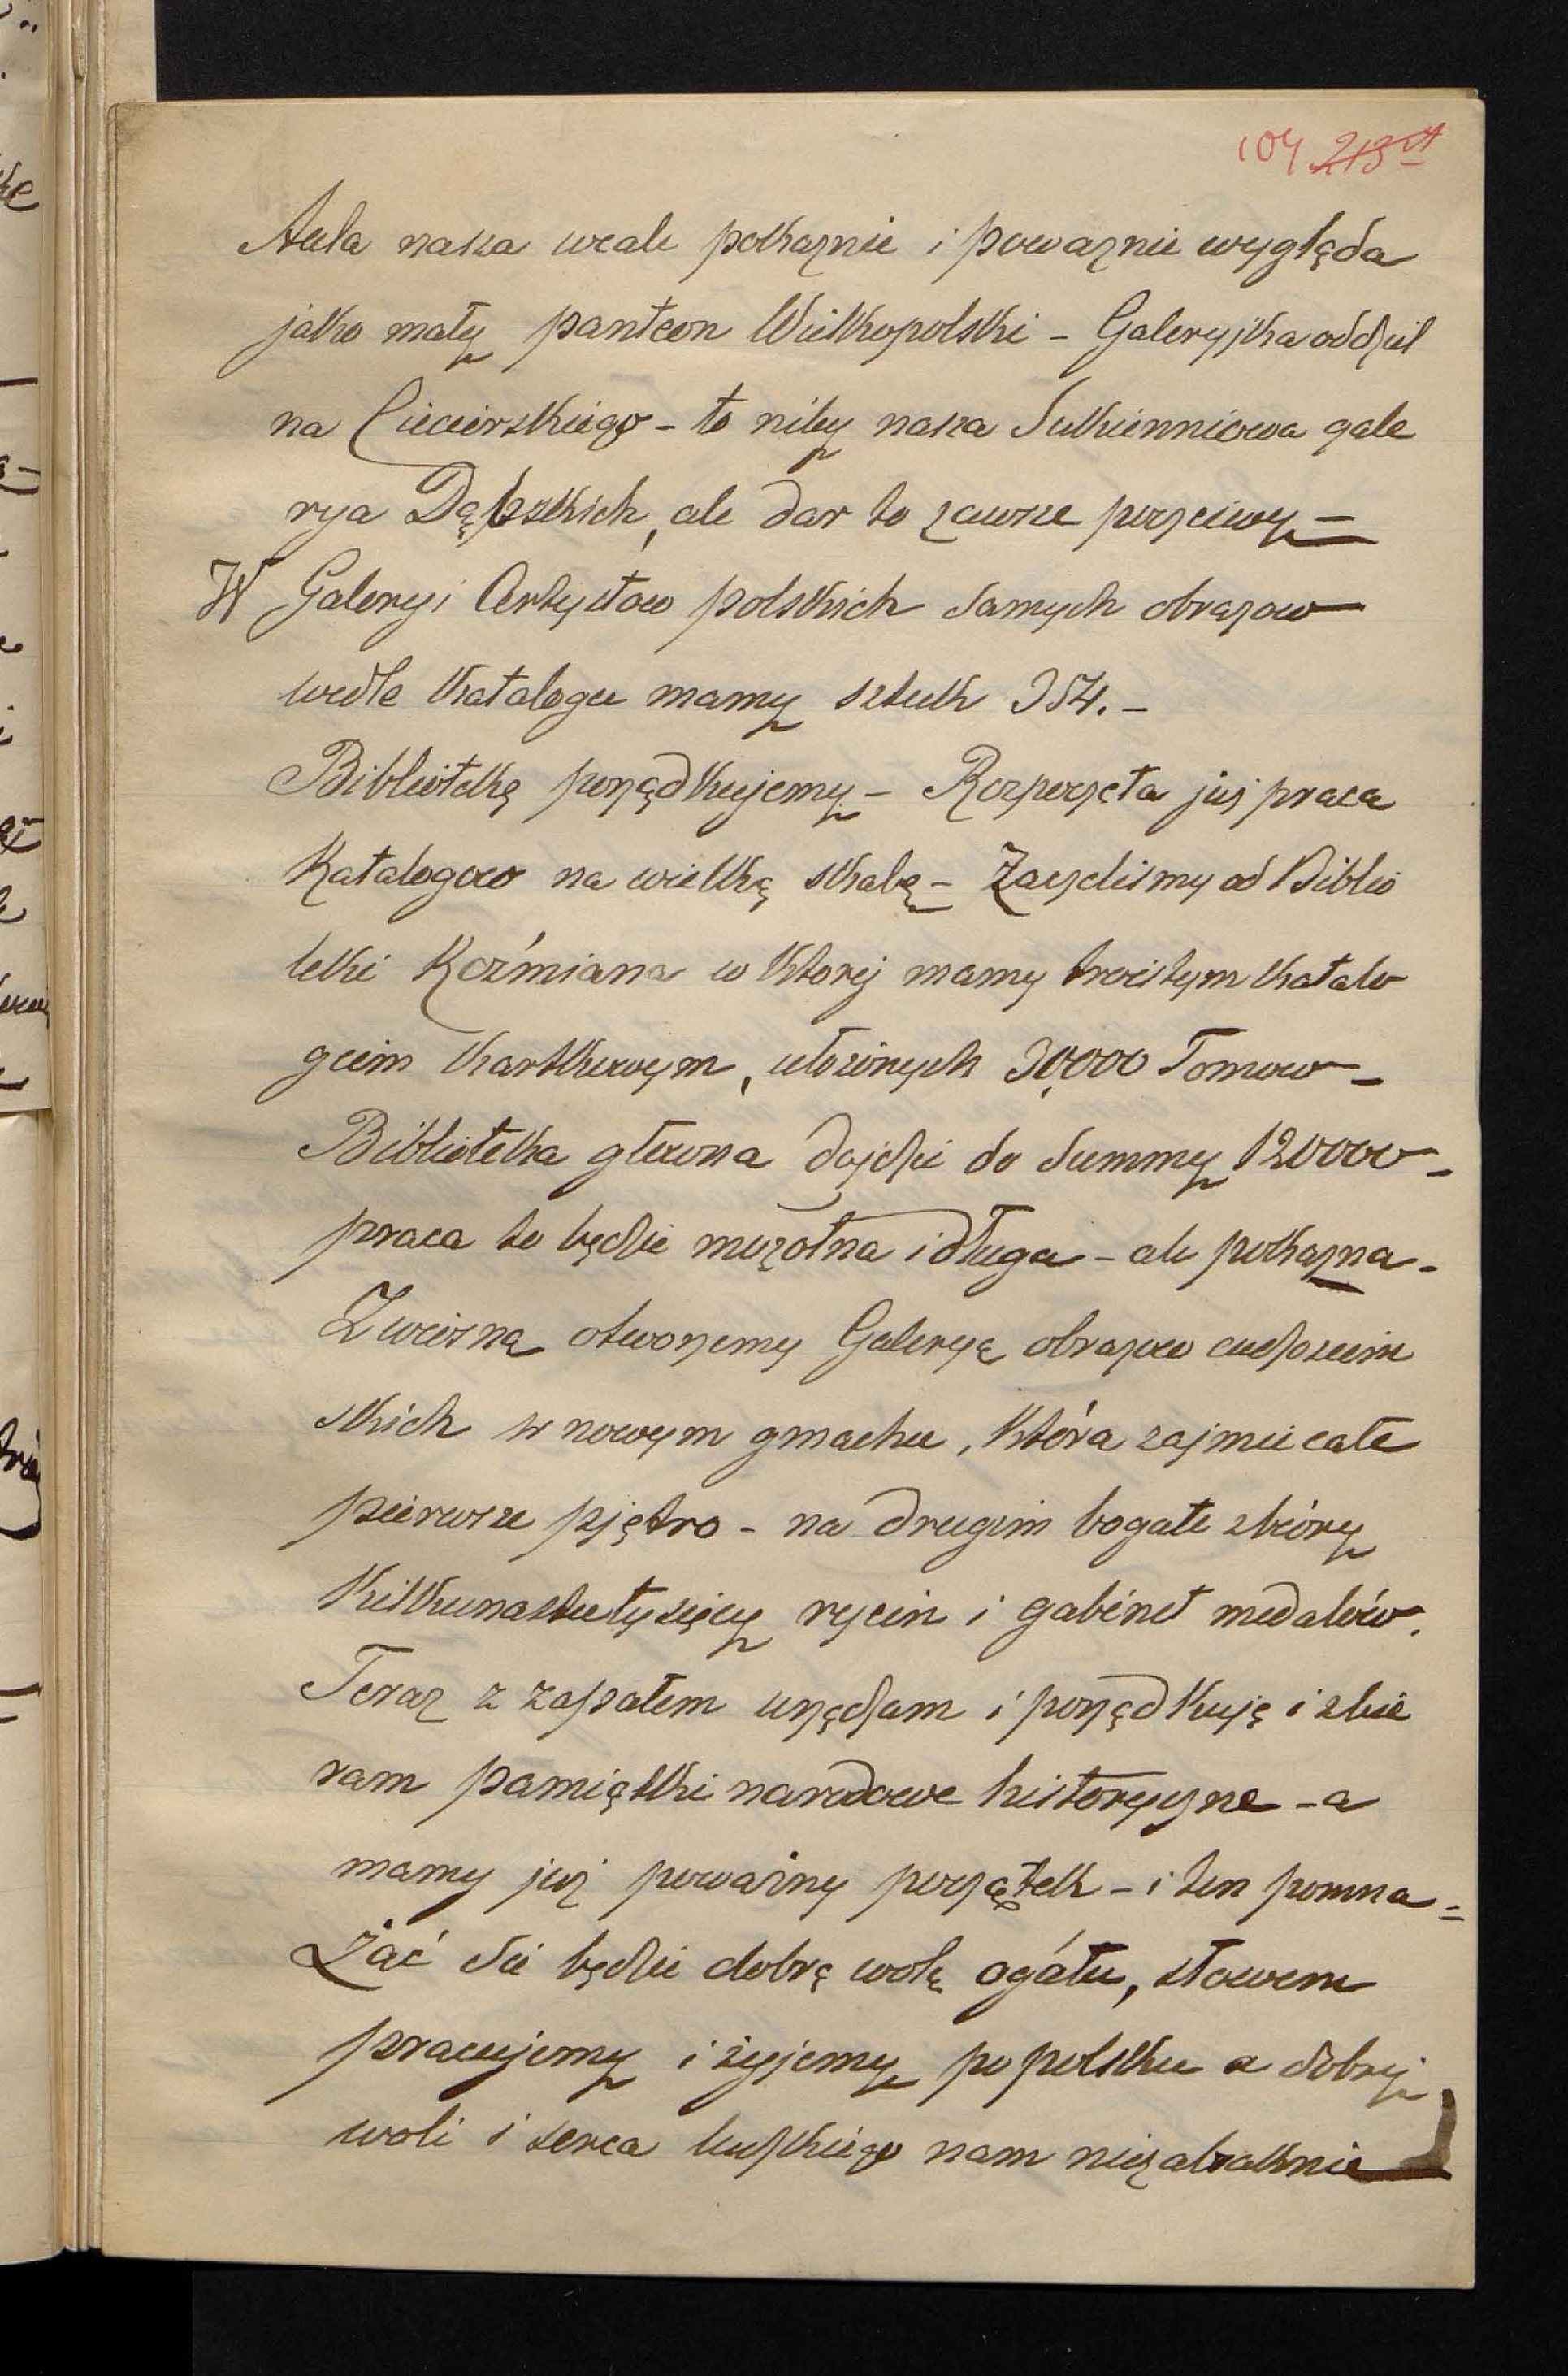 104 213
Aula nasza wcale pokaznie i powaznie wygląda
jako mały panteon Wielkopolski - Galeryjka oddziel
na Ciecierskiego - to niby nasza Sukiennicowa gale
rya Dąbskich, ale dar to zawsze poczciwy -
W Galeryi Artystow polskich samych obrazow
wedle Katalogu mamy sztuk 354. -
Bibliotekę porządkujemy - Rozpoczęta juz praca
Katalogow na wielką skalę - Zaczelismy od Biblio
teki Koźmiana w Ktorej mamy troistym katalo
giem Kartkowym, ułozonych 30,000 Tomow -
Biblioteka głowna dojdzie do Summy 120000 -
praca to będzie mozolna i długa - ale pokazna -
Z wiosną otworzemy Galeryą obrazow cudzoziem
skich w nowym gmachu, Która zajmie całe
pierwsze pjętro - na drugim bogate zbióry
Kilkunastutysięcy rycin i gabinet medalów.
Teraz z zapałem urządzam i porządkuję i zbie
ram pamiątki narodowe historyczne - a
mamy juz poważny początek - i ten pomna =
żać sie będzie dobrą wolą ogółu, słowem
pracujemy i żyjemy po polsku a dobrej
woli i serca ludzkiego nam niezabraknie